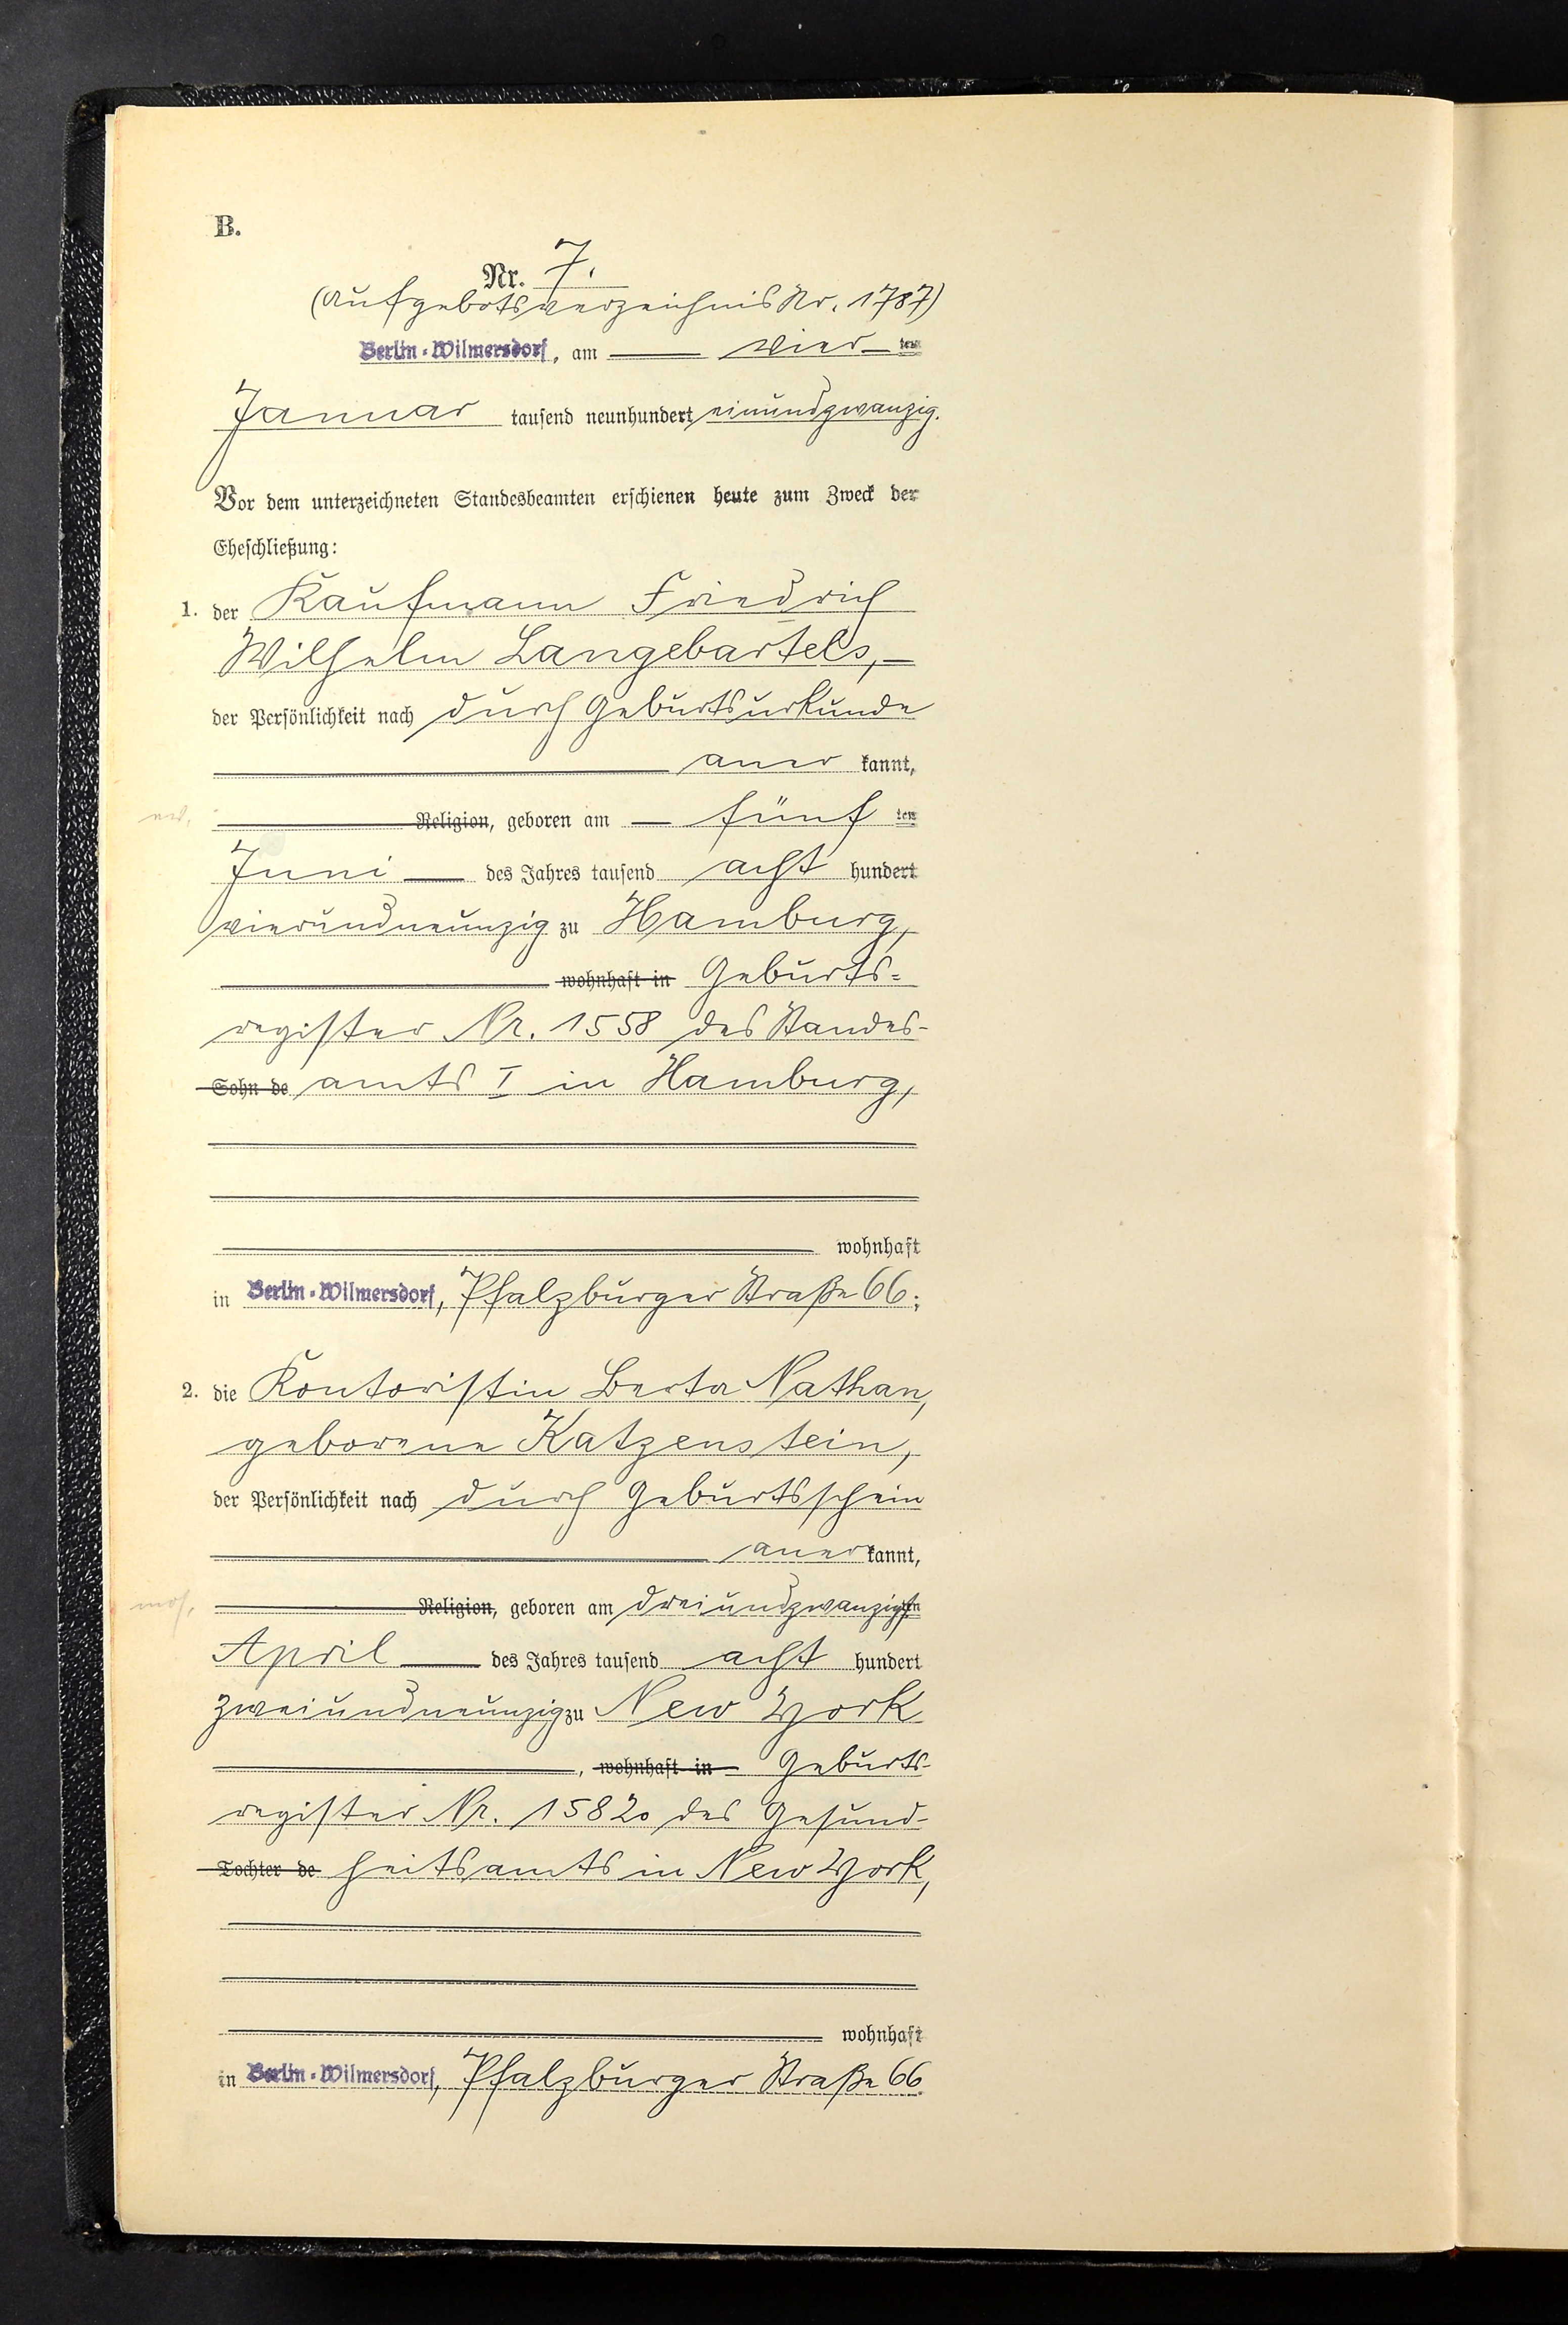 B.
Nr. 7.
(Aufgebotsverzeichnis Nr. 1787)
Berlin-Wilmersdorf, am vier ten
Januar tausend neunhundert einundzwanzig.
Vor dem unterzeichneten Standesbeamten erschienen heute zum Zweck der
Eheschließung:
1. der Kaufmann Friedrich
Wilhelm Langebartels,
der Persönlichkeit nach durch Geburtsurkunde
aner kannt,
Religion, geboren am fünf ten
Juni des Jahres tausend acht hundert
vierundneunzig zu Hamburg,
wohnhaft in Geburts-
register Nr. 1558 des Standes-
Sohn de amts I in Hamburg,
wohnhaft
in Berlin-Wilmersdorf, Pfalzburger Straße 66;
2. die Kontoristin Berta Nathan,
geborene Katzenstein,
der Persönlichkeit nach durch Geburtsschein
aner kannt,
mos. Religion, geboren am dreiundzwanzigsten
April des Jahres tausend acht hundert
zweiundneunzig zu New York
, wohnhaft in Geburts-
register Nr. 15820 des Gesund-
Tochter de heitsamts in New York,
wohnhaft
in Berlin-Wilmersdorf, Pfalzburger Straße 66.